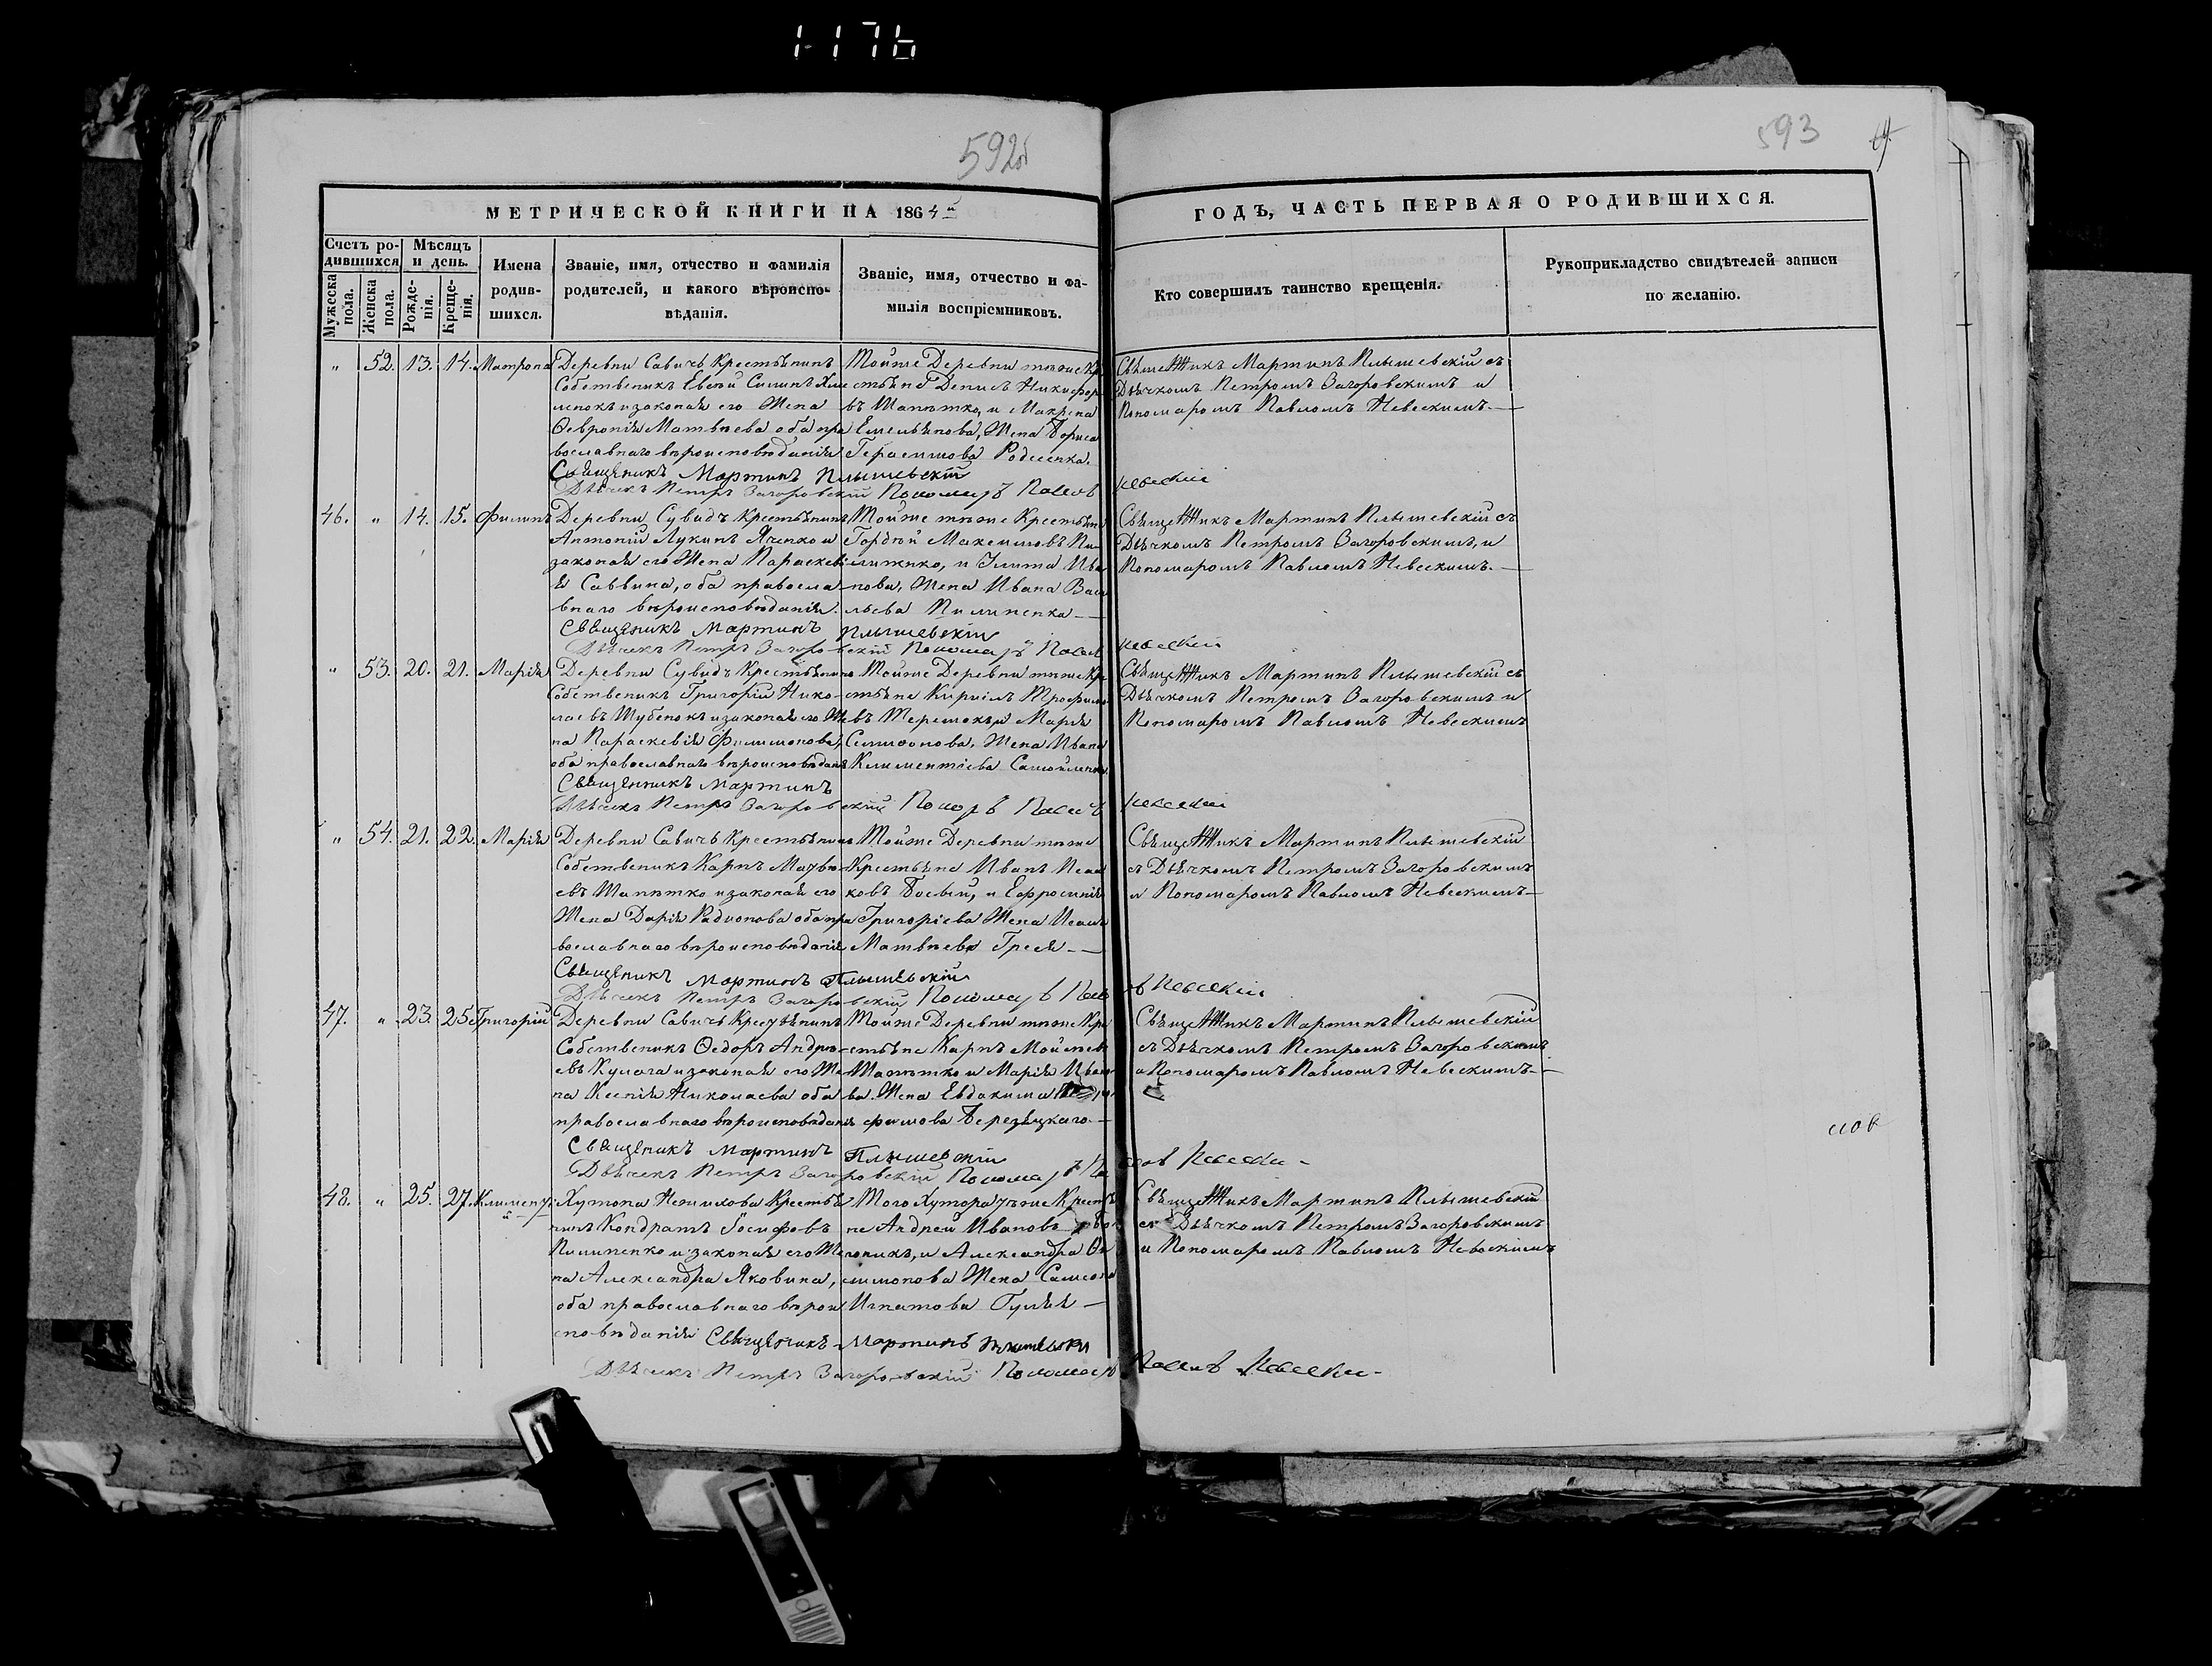 1-176
592об
593
МЕТРИЧЕСКОЙ КНИГИ НА 1864й
ГОДЪ, ЧАСТЬ ПЕРВАЯ О РОДИВШИХСЯ.
Счетъ родившихся
Мужеска пола.
Женска пола.
Мѣсяцъ и день.
Рожденія.
Крещенія.
Имена родившихся.
Званіе, имя, отчество и фамилія родителей, и какого вѣроисповѣданія.
Званіе, имя, отчество и фамилія воспріемниковъ.
Кто совершилъ таинство крещенія.
Рукоприкладство свидѣтелей записи по желанію.
" 52. 13. 14. Матрона
Деревни Савичъ Крестьянинъ
Собственикъ Евсѣй Силинъ
законая его Жена
Ѳевронія Матвѣева оба пра
вославнаго вѣроисповѣданія
Тойже Деревни тоже Кре
стьяне Денисъ Никифор
въ Шапѣтко, и Макрена
Емельянова, Жена Бориса
Герасимова Родченка.
СвященНикъ Мартинъ Плышевскій съ
Дьячкомъ Петромъ Загоровскимъ и
Пономаромъ Павломъ Невескимъ.—
Священикъ Мартинъ Плышевскій
Дьячекъ Петръ Загоровскій Пономаръ Павелъ Невескій
46. " 14. 15. Филипъ
Деревни Сувидъ Крестьянинъ
Антоній Лукинъ Яченко и
законая его Жена Параскеві
я Саввина, оба правосла
внаго вѣроисповѣданія.
Тойже тоже Крестьяне
Гордѣй Максимовъ Пи
липенко, и Улита Ива
нова, Жена Ивана Васи
льева Пилипенка—
СвященНикъ Мартинъ Плышевскій съ
Дьячкомъ Петромъ Загоровскимъ, и
Пономаромъ Павломъ Невескимъ.—
Священикъ Мартинъ Плышевскій
Дьячекъ Петръ Загоровскій Пономаръ Павелъ Невескій
" 53. 20. 21. Марія
Деревни Сувидъ Крестьянинъ
Собственикъ Григорій Нико-
лаевъ Шубенокъ и законая его Же
на Параскевія Филимонова,
оба православнаго вѣроисповѣданія
Тойже Деревни тоже Кре
стьяне Кирилъ Трофимо
въ Терешокъ и Марія
Семионова, Жена Ивана
Климентіева Самойленка
СвященНикъ Мартинъ Плышевскій съ
Дьячкомъ Петромъ Загоровскимъ и
Пономаромъ Павломъ Невескимъ
Священникъ Мартинъ
Дьячекъ Петръ Загоровскій Павелъ Невескій
" 54. 21. 22. Марія
Деревни Савичъ Крестьянинъ
Собственикъ Карпъ Матвѣ-
евъ Шапѣтко и законая его
Жена Дарія Радионова оба пра
вославнаго вѣроисповѣданія
Тойже Деревни тоже
Крестьяне Иванъ Исаа
ковъ Боевый, и Ефросинія
Григоріева Жена Исаака
Матвѣева
СвященНикъ Мартинъ Плышевскій
съ Дьячкомъ Петромъ Загоровскимъ
и Пономаромъ Павломъ Невескимъ—
Священикъ Мартинъ Плышевскій
Дьячекъ Петръ Загоровскій Пономаръ Павелъ Невескій
47. " 23. 25. Григорій
Деревни Савичъ Крестьянинъ
Собственикъ Ѳедоръ Андрѣ-
евъ Кулага и законая его Же
на Ксенія Николаева оба
православнаго вѣроисповѣданія
Тойже Деревни тоже Кре
стьяне Карпъ Мойсеевъ
Шапѣтко и Марія Ивано
ва. Жена Евдакима
фимова Березецкаго.—
СвященНикъ Мартинъ Плышевскій
съ Дьячкомъ Петромъ Загоровскимъ
и Пономаромъ Павломъ Невескимъ—
Священикъ Мартинъ Плышевскій
Дьячекъ Петръ Загоровскій Пономаръ Павелъ Невески-
48. " 25. 27. Климентій
Хутона Крестья
нинъ Кондратъ Іосифовъ
Пилипенко и законая его Же
на Александра Яковина,
оба православнаго вѣрои
сповѣданія
Того Хутора тоже Крестья
не Андрей Ивановъ
и Александра
Жена Самсона
Игнатова Гуляя—
СвященНикъ Мартинъ Плышевскій
съ Дьячкомъ Петромъ Загоровскимъ
и Пономаромъ Павломъ Невескимъ
Священикъ Мартинъ Плышевски
Дьячекъ Петръ Загоровскій Пономаръ Павелъ Невески-